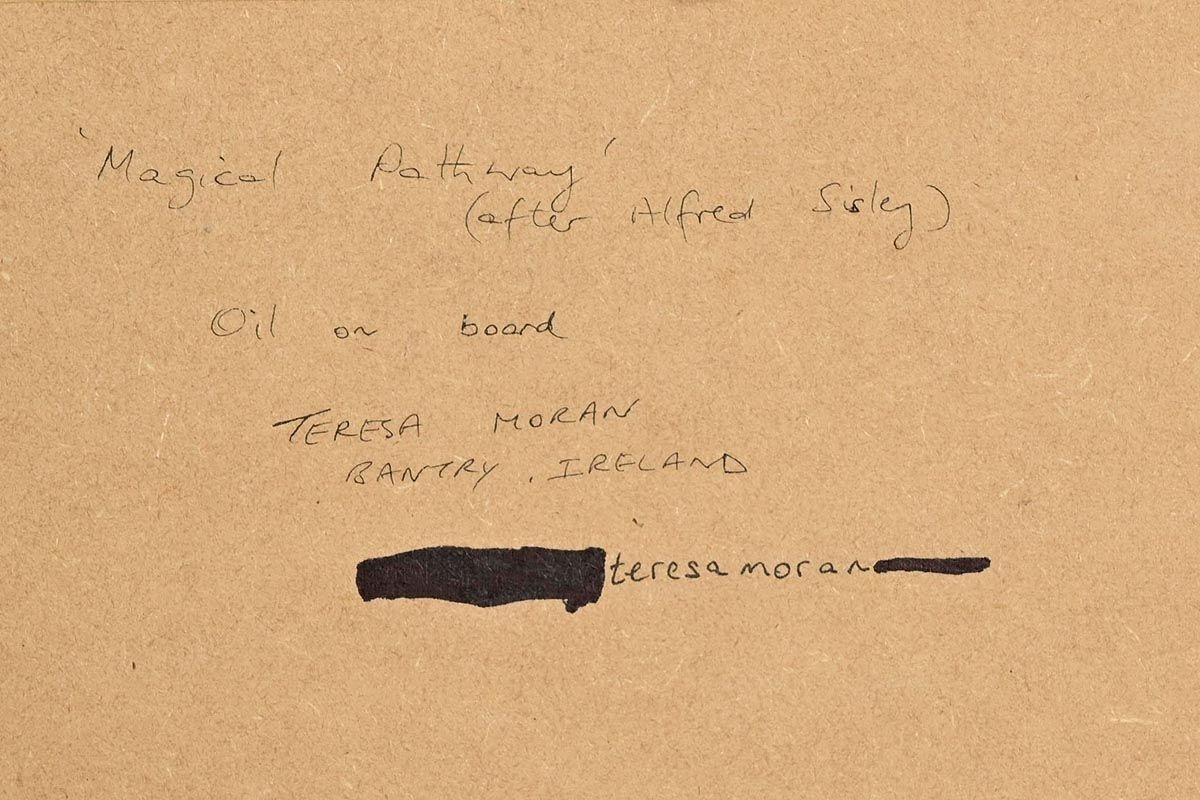 'Magical Pathway'
(after Alfred Sisley)
Oil on board
TERESA MORAN
BANTRY. IRELAND
teresamoran